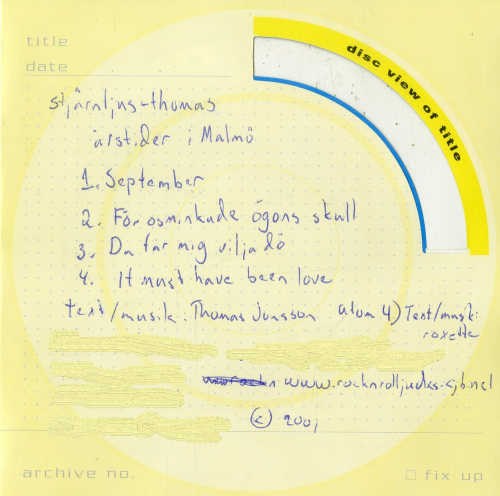 title
disc view of title
date
stjärnljus-thomas
årstider i Malmö
1. September
2. För osminkade ögons skull
3. Du får mig vilja dö
4. It must have been love
text/musik: Thomas Jonsson utom 4) Text/musik:
roxette
www.rocknrolljudas-cjb.net
(c) 2001
archive no.
fix up